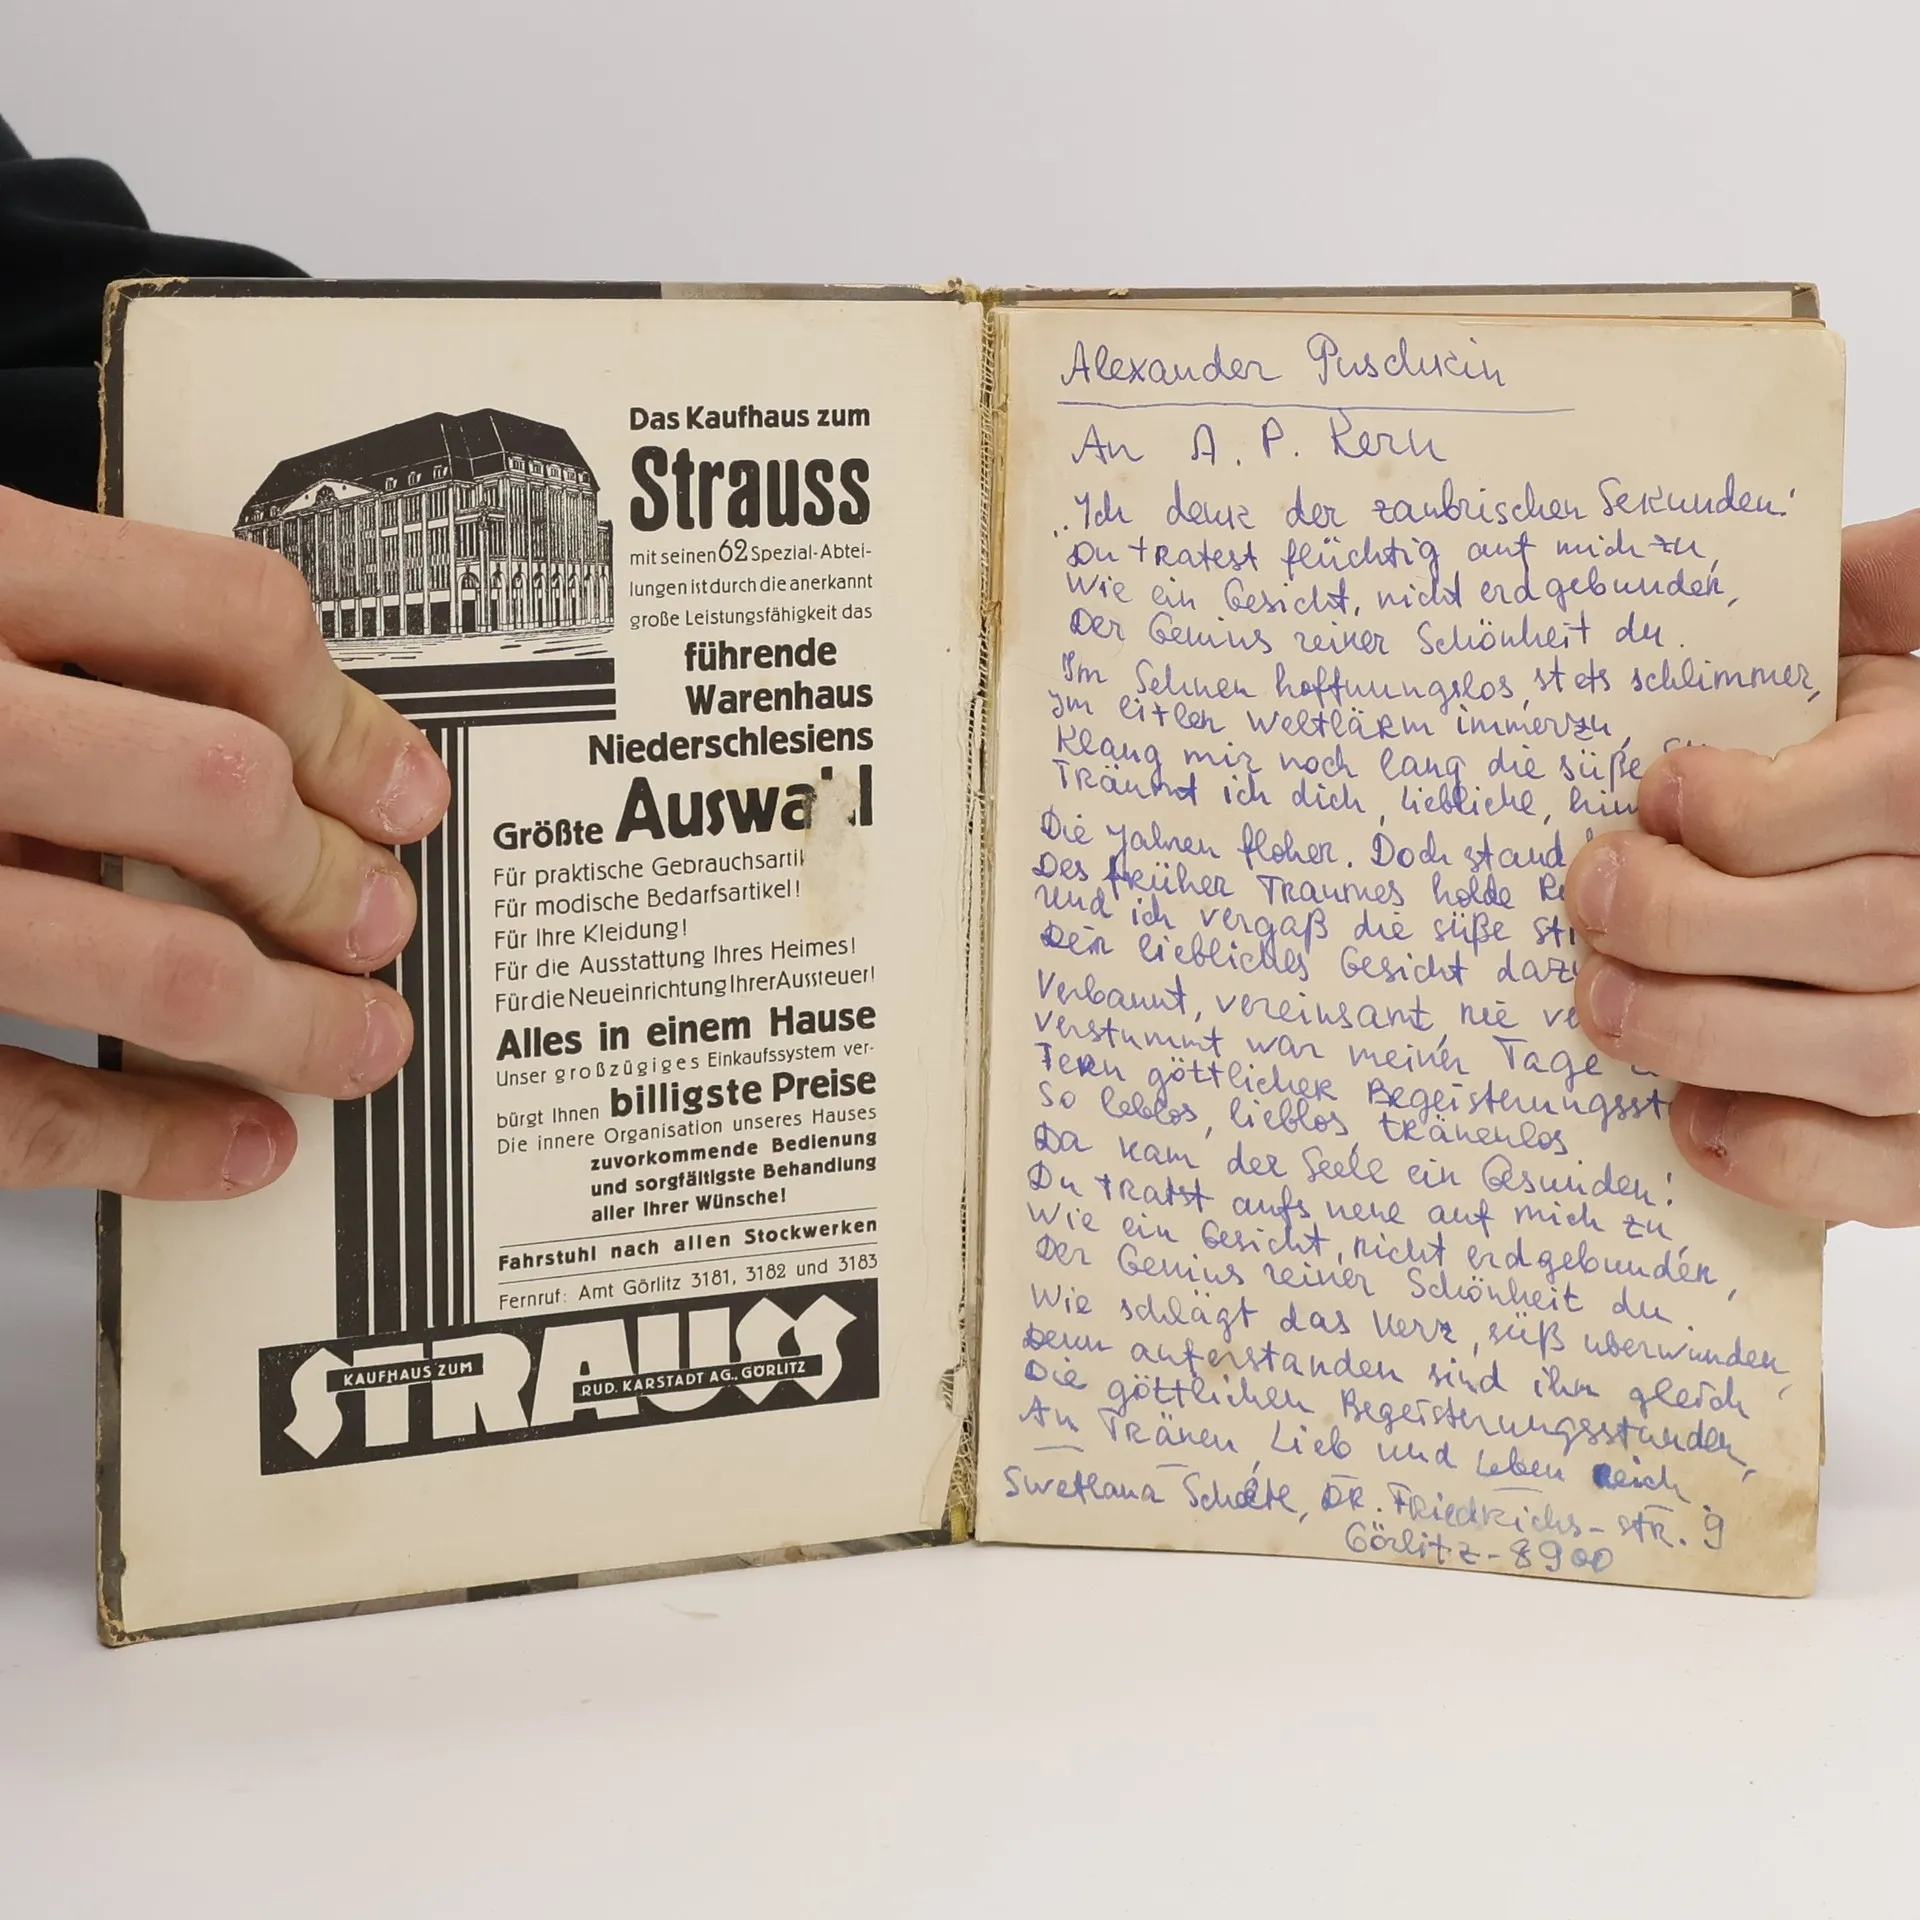 Das Kaufhaus zum
Strauss
mit seinen 62 Spezial-Abtei-
lungen ist durch die anerkannt
große Leistungsfähigkeit das
führende
Warenhaus
Niederschlesiens
Größte Auswahl
Für praktische Gebrauchsartik
Für modische Bedarfsartikel!
Für Ihre Kleidung!
Für die Ausstattung Ihres Heimes!
Für die Neueinrichtung Ihrer Aussteuer!
Alles in einem Hause
Unser großzügiges Einkaufssystem ver-
bürgt Ihnen billigste Preise
Die innere Organisation unseres Hauses
zuvorkommende Bedienung
und sorgfältigste Behandlung
aller Ihrer Wünsche!
Fahrstuhl nach allen Stockwerken
Fernruf: Amt Görlitz 3181, 3182 und 3183
STRAUSS
KAUFHAUS ZUM
RUD. KARSTADT AG., GÖRLITZ
Alexander Puschkin
An A. P. Kern
"Ich denk der zaubrischen Sekunden!
Du tratest flüchtig auf mich zu,
Wie ein Gesicht, nicht erdgebunden,
Der Genius reiner Schönheit du.
Im Sehnen hoffnungslos, stets schlimmer,
Im eitlen Weltlärm immerzu,
Klang mir noch lang die süße
Träumt ich dich, Liebliche,
Die Jahren flohen. Doch stand
Des früher Traumes holde
Und ich vergaß die süße
Dein liebliches Gesicht
Verbannt, vereinsamt, nie
Verstummt war meiner Tage
Fern göttlicher Begeisterungsst
So leblos, lieblos, tränenlos.
Da kam der Seele ein Gesunden:
Du tratst aufs neue auf mich zu
Wie ein Gesicht, nicht erdgebunden,
Der Genius reiner Schönheit du.
Wie schlägt das Herz, süß überwunden,
Denn auferstanden sind ihm gleich
Die göttlichen Begeisterungsstunden,
An Tränen, Lieb und Leben reich.
Swetlana DR. Friedrichs-str. 9
Görlitz-8900